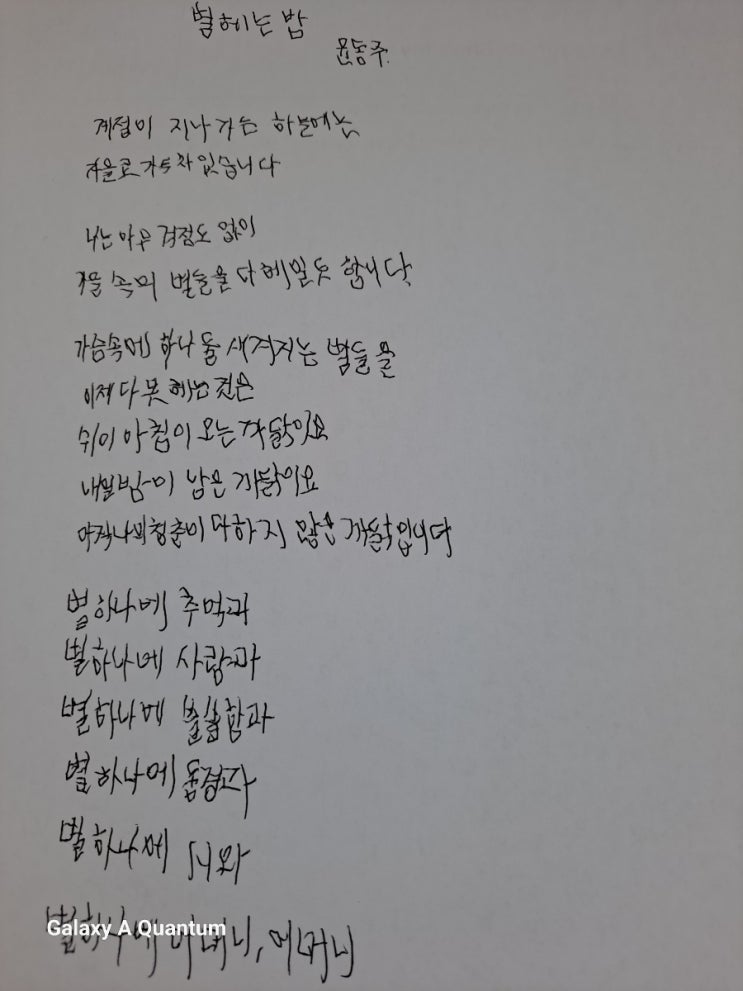 별 헤는 밤
윤동주.
계절이 지나가는 하늘에는
가을로 가득 차 있습니다
나는 아무 걱정도 없이
가을 속의 별들을 다 헤일 듯 합니다
가슴속에 하나 둘 새겨지는 별들을
이제 다 못 헤는 것은
쉬이 아침이 오는 까닭이요
내일 밤이 남은 까닭이요
아직 나의 청춘이 다하지 않은 까닭입니다
별 하나에 추억과
별 하나에 사랑과
별 하나에 쓸쓸함과
별 하나에 동경과
별 하나에 시와
별 하나에 어머니, 어머니
Galaxy A Quantum